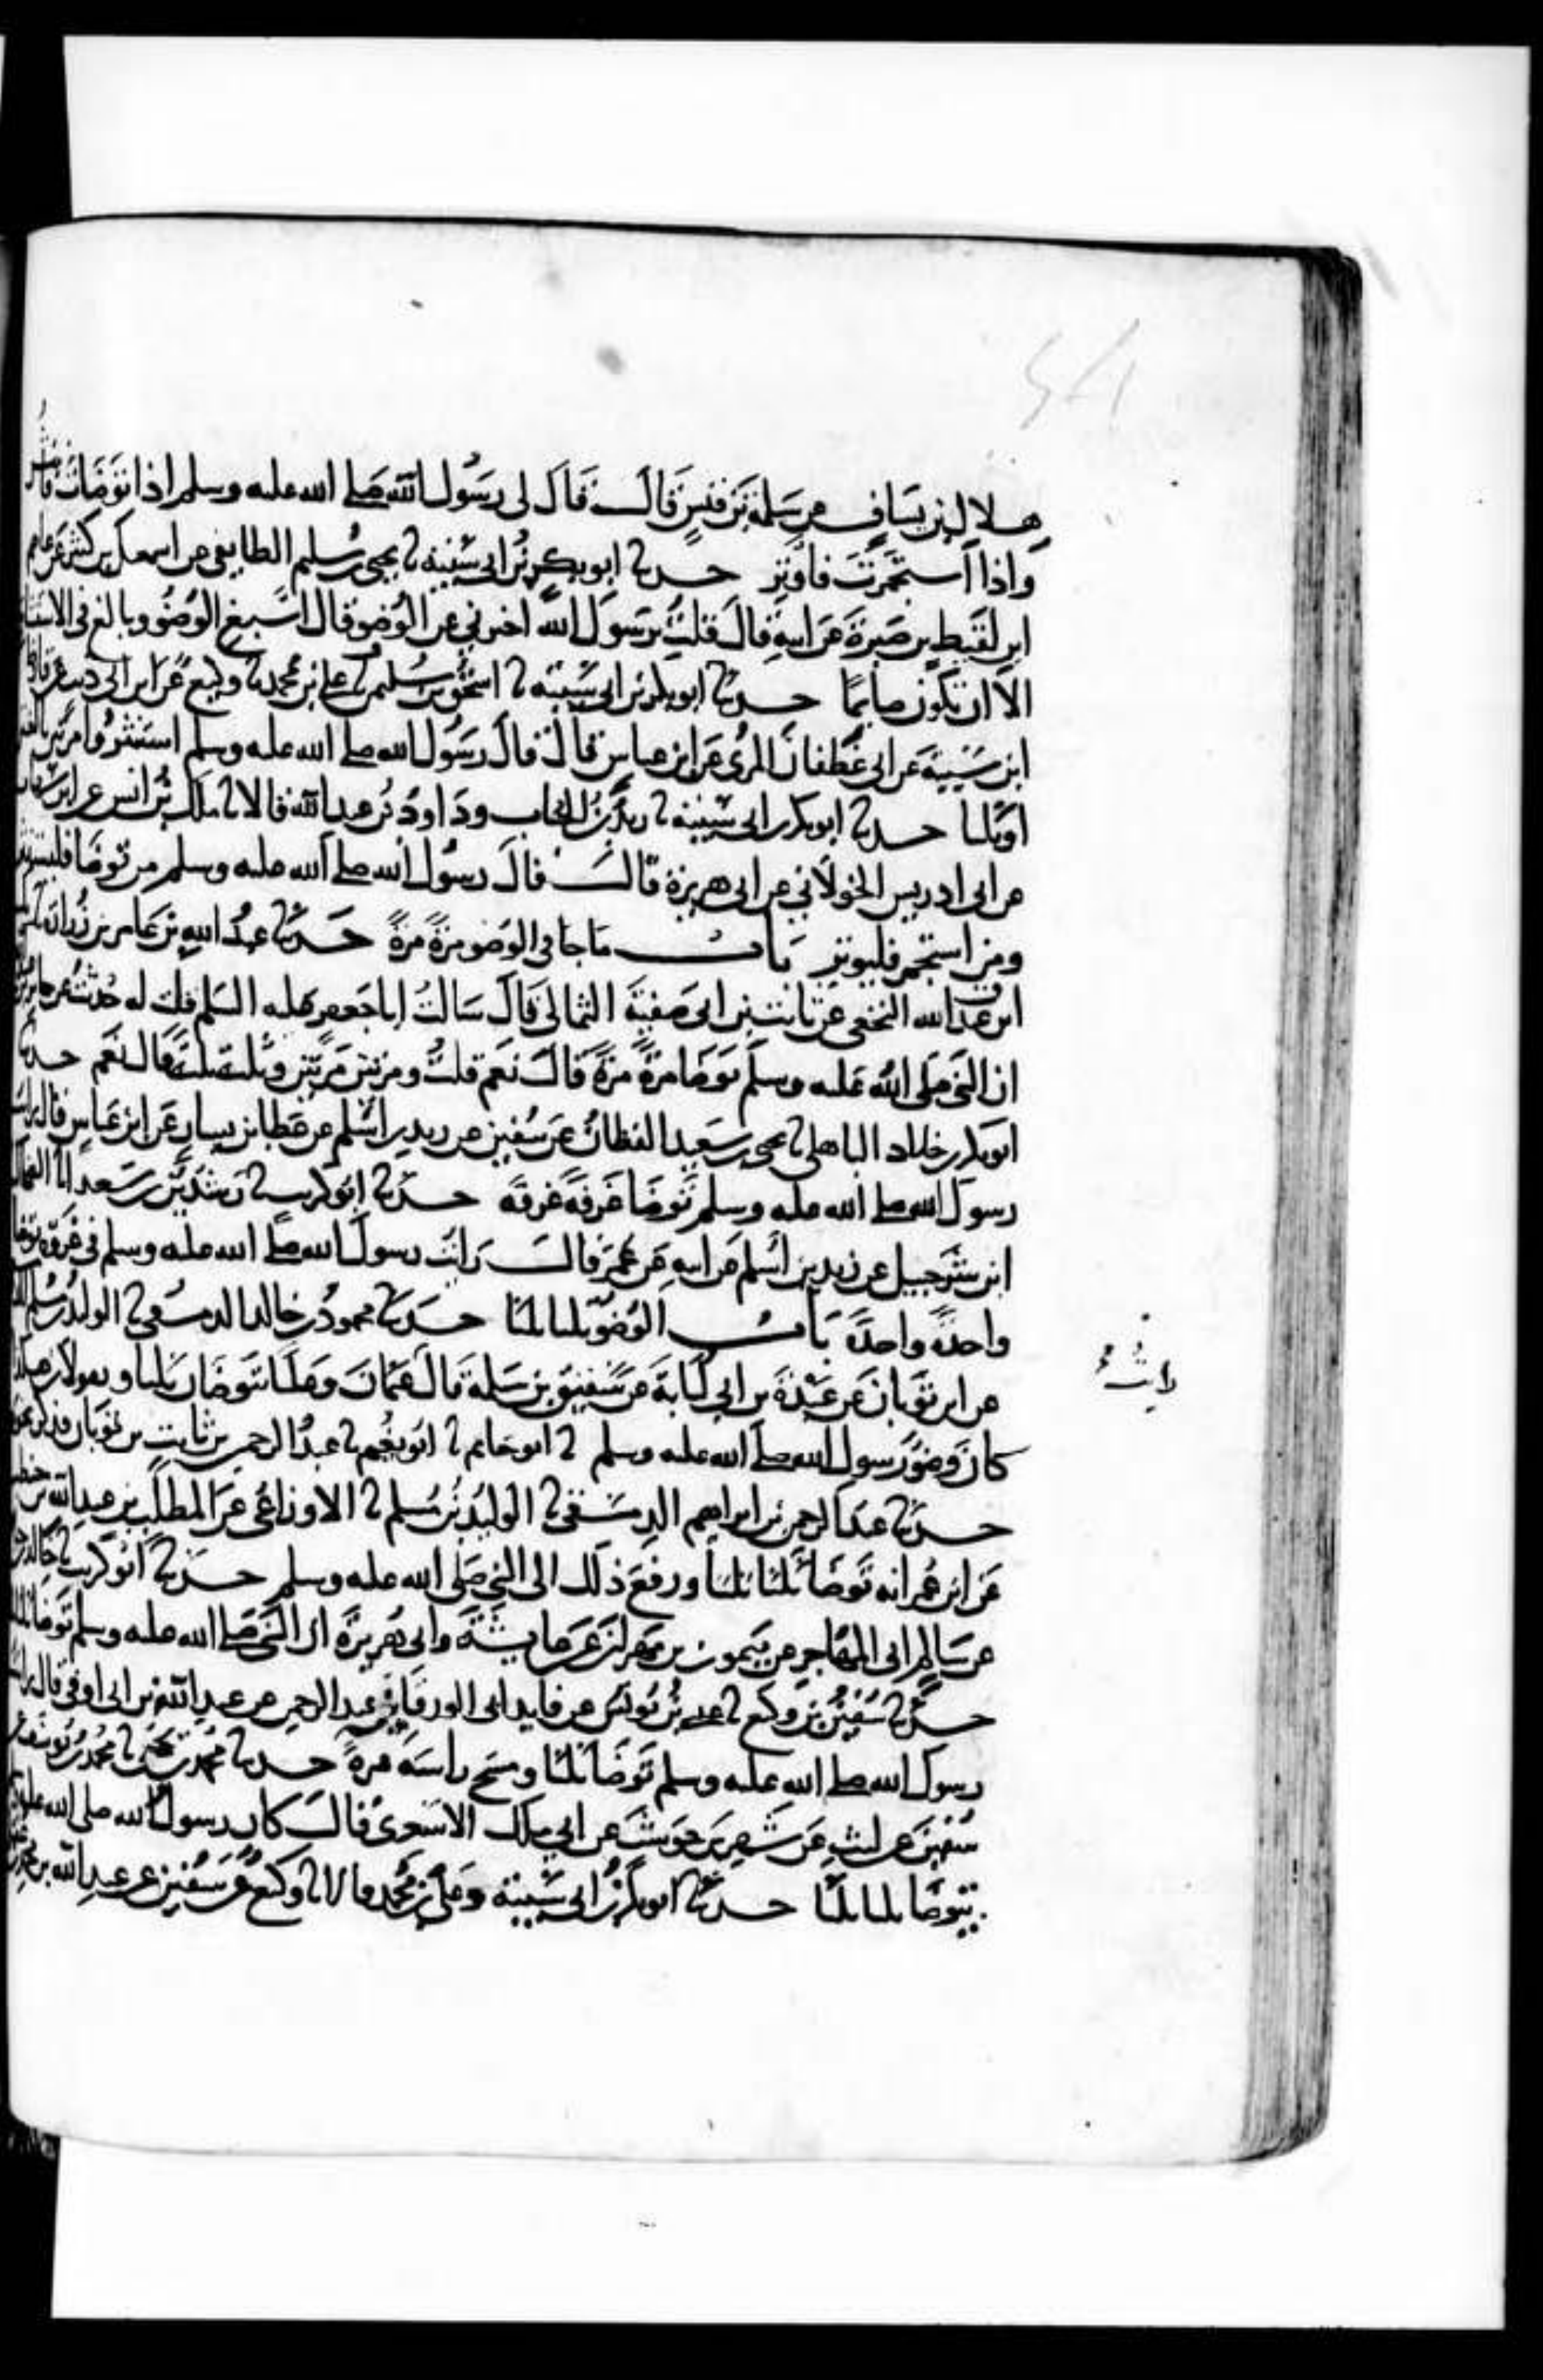 هلال بن يساف عن سلمة بن قيس قال قال لى رسول الله صلى الله عليه وسلم اذا توضات فانثر
واذا استجمرت فاوتر حدثنا ابو بكر بن ابى شيبة ثنا يحيى بن سليم الطايفى عن اسمعيل بن كثير عن عاصم
ابن لقيط بن صبرة عن ابيه قال قلت يرسول الله اخبرني عن الوضو قال اسبغ الوضو وبالغ فى الاستنشاق
الا ان تكون صايما حدثنا ابو بكر بن ابى شيبة ثنا اسحق بن سليمن ثنا على بن محمد ثنا وكيع عن ابن ابى ذيب عن قارظ
ابن شيبة عن ابى غطفان المرى عن ابن عباس قال قال رسول الله صلى الله عليه وسلم استنثروا مرتين بالغتين
او ثلثا حدثنا ابو بكر بن ابى شيبة ثنا زيد بن الحباب وداود بن عبد الله قالا ثنا ملك بن انس عن ابن شهاب
عن ابى ادريس الخولاني عن ابى هريرة قال قال رسول الله صلى الله عليه وسلم من توضا فليستنثر
ومن استجمر فليوتر باب ما جا فى الوضو مرة مرة حدثنا عبد الله بن عامر بن زرارة
ابن عبد الله النخعي عن ثابت بن ابى صفية الثمالى قال سالت ابا جعفر عليه السلم قلت له حدثت عن جابر
ان النبى صلى الله عليه وسلم توضا مرة مرة قال نعم قلت ومرتين مرتين وثلث ثلث قال نعم حدثنا
ابو بكر بن خلاد الباهلى ثنا يحيى بن سعيد القطان عن سفين عن زيد بن اسلم عن عطا بن يسار عن ابن عباس قال رايت
رسول الله صلى الله عليه وسلم توضا غرفة غرفة حدثنا ابو كريب ثنا رشدين بن سعد انا الضحاك
ابن شرحبيل عن زيد بن اسلم عن ابيه عن عمر قال رايت رسول الله صلى الله عليه وسلم فى غزوة توضا
واحدة واحدة باب الوضو ثلثا ثلثا حدثنا محمود بن خالد الدمشقى ثنا الوليد بن مسلم
عن ابن ثوبان عن عبدة بن ابى لبابة عن شقيق بن سلمة قال عثمان وعليا يتوضان ثلثا ويقولان هكذا
رايت
كان وضو رسول الله صلى الله عليه وسلم ثنا ابو حاتم ثنا ابو نعيم ثنا عبد الرحمن بن ثابت بن ثوبان فذكر نحوه
حدثنا عبد الرحمن بن ابراهيم الدمشقى ثنا الوليد بن مسلم ثنا الاوزاعى عن المطلب بن عبد الله بن حنطب
عن ابن عمر انه توضا ثلثا ثلثا ورفع ذلك الى النبى صلى الله عليه وسلم حدثنا ابو كريب ثنا خالد بن
عن سالم ابى المهاجر عن ميمون بن مهرن عن عايشة وابى هريرة ان النبى صلى الله عليه وسلم توضا ثلثا
حدثنا سفين بن وكيع ثنا عيسى بن يونس عن فايد ابى الورقا بن عبد الرحمن عن عبد الله بن ابى اوفى قال رايت
رسول الله صلى الله عليه وسلم توضا ثلثا ومسح راسه مرة حدثنا محمد بن يحيى ثنا محمد بن يوسف
سفين عن ليث عن شهر بن حوشب عن ابى ملك الاشعرى قال كان رسول الله صلى الله عليه
يتوضا ثلثا ثلثا حدثنا ابو بكر بن ابى شيبة وعلى بن محمد قالا ثنا وكيع عن سفين عن عبد الله بن محمد